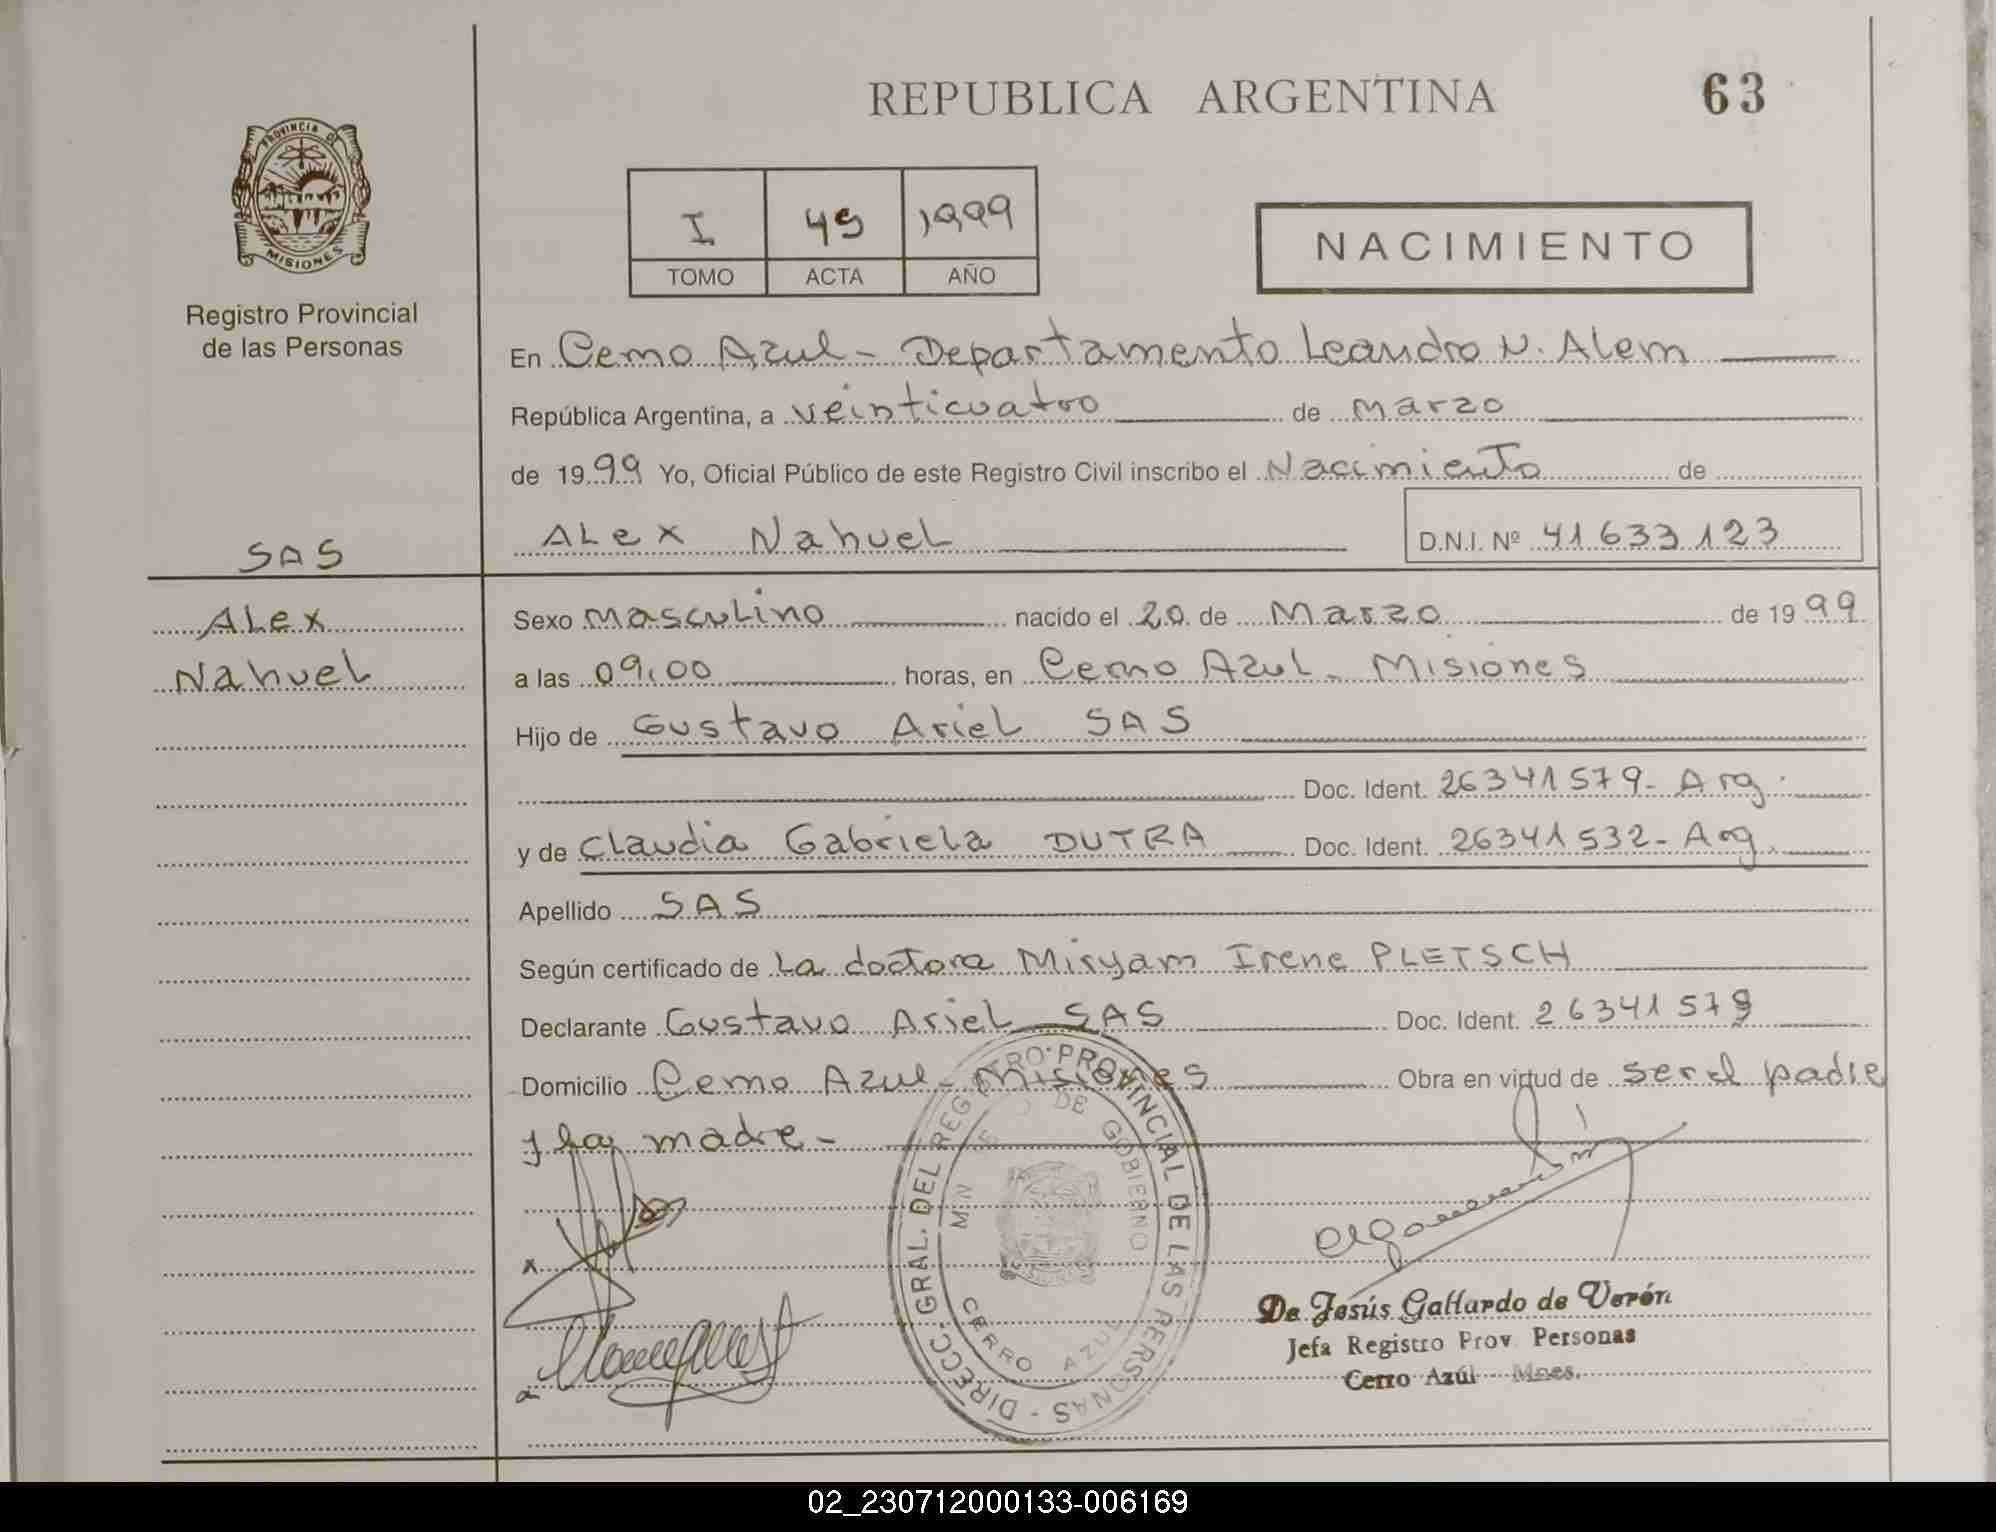 REPUBLICA ARGENTINA
63
PROVINCIA DE
MISIONES
Registro Provincial
de las Personas
I 49 1999
TOMO ACTA AÑO
NACIMIENTO
En Cerro Azul - Departamento Leandro N. Alem
República Argentina, a veinticuatro de marzo
de 1999 Yo, Oficial Público de este Registro Civil inscribo el Nacimiento de
SAS
Alex Nahuel
D.N.I. Nº 41633123
Alex
Nahuel
Sexo masculino nacido el 20 de Marzo de 1999
a las 09,00 horas, en Cerro Azul - Misiones
Hijo de Gustavo Ariel SAS
Doc. Ident. 26341579 - Arg.
y de Claudia Gabriela DUTRA Doc. Ident. 26341532 - Arg.
Apellido SAS
Según certificado de La doctora Miryam Irene PLETSCH
Declarante Gustavo Ariel SAS Doc. Ident. 26341579
Domicilio Cerro Azul - Misiones Obra en virtud de ser el padre
y la madre -
DIRECC. GRAL. DEL REGISTRO PROVINCIAL DE LAS PERSONAS -
DE GOBIERNO
CERRO AZUL
De Jesús Gallardo de Verón
Jefa Registro Prov. Personas
Cerro Azúl Mnes.
02_230712000133-006169